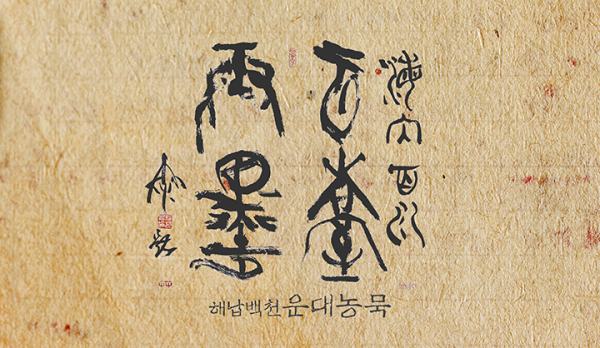 海内百川
云臺
弄墨
해납백천운대농묵